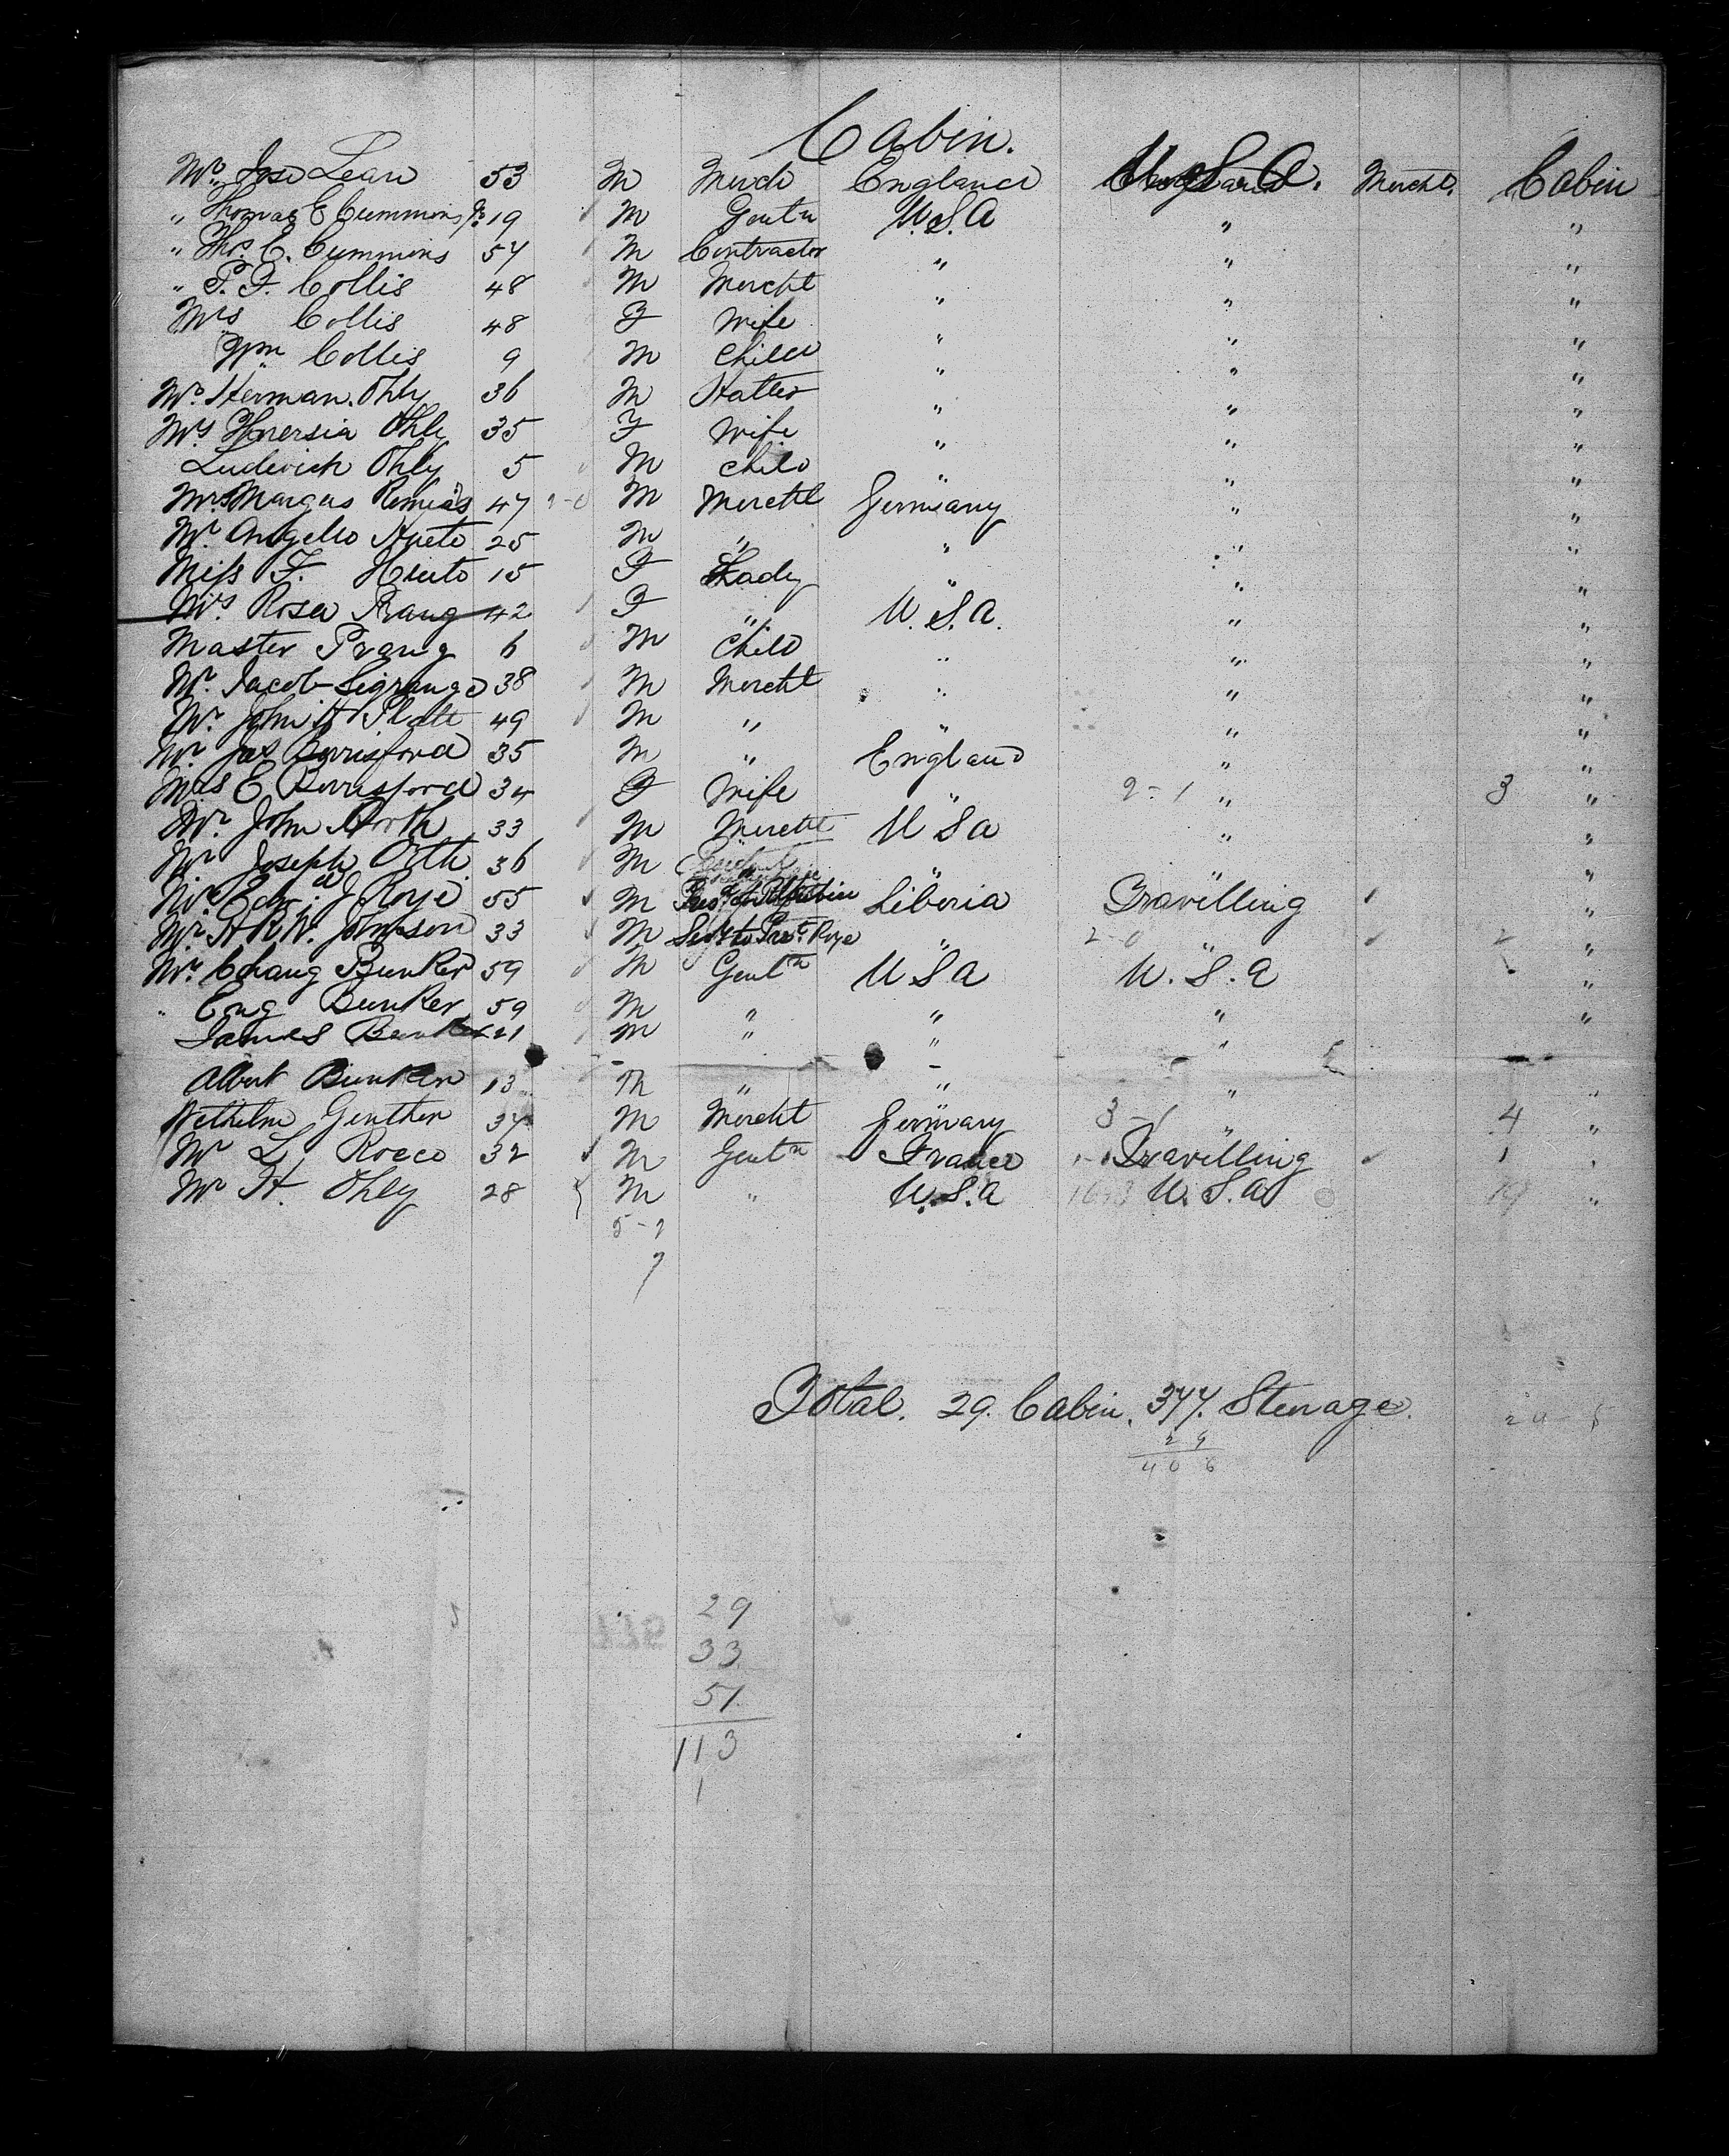 Cabin.
Mr. Jose Lean 53 M Mercht England U.S.A. Mercht. Cabin
" Thomas E Cummins Jr. 19 M Gentn U.S.A " "
" Thos. E. Cummins 54 M Contractor " " "
" P. F. Collis 48 M Mercht " " "
Mrs Collis 48 F Wife " " "
Wm Collis 9 M Child " " "
Mr. Herman Ohly 36 M Hatter " " "
Mrs Ohly 35 F Wife " " "
Ludevich Ohly 5 M Child " " "
Margus 47 2-0 M Mercht Germany " "
Mr. Angello 25 M " " " "
Miss F. 15 F Lady " " "
Mrs Rosa Prang 42 F " U.S.A. " "
Master Prang 6 M Child " " "
Mr. Jacob Legrange 38 M Mercht " " "
Mr. John H Platt 49 M " " " "
Mr Jas Berrisford 35 M " England " "
Mrs E Berrisford 34 F Wife " 2-1 " 3 "
Mr. John North 33 M Mercht U S a " "
Mr Joseph Orth 36 M " " " "
Mr Edwd J Roye 55 M Liberia Travelling "
Mr. H R W. Johnson 33 M Secy to Prest Roye " 2-0 " 2 "
Mr. Chang Bunker 59 M Gentn U S a U.S.a "
" Eng Bunker 59 M " " " "
James Bunker 21 M " " "
Albert Bunker 13 M " " " "
Wilhelm Genther 34 M Mercht Germany 3-1 " 4 "
Mr L. Rocco 32 M Gentn France Travelling 1 "
Mr H. Ohly 28 M " U.S.a U.S.a 19 "
5-2
7
Total. 29. Cabin. 377. Steerage.
29
406
29
33
51
113
1